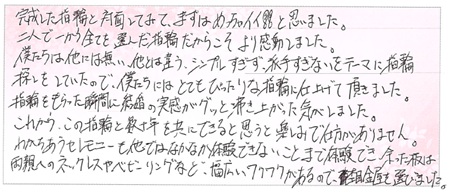 完成した指輪と対面してみて、まずはめっちゃイイ!!と思いました。
二人で一から全てを選んだ指輪だからこそより感動しました。
僕たちは他には無い、他とは違う、シンプルすぎず、派手すぎないをテーマに指輪
探しをしていたので、僕たちにはとてもぴったりな指輪に仕上げて頂きました。
指輪をもらった瞬間に結婚の実感がグッと沸き上がった気がしました。
これから、この指輪と数十年を共にできると思うと楽しみで仕方がありません。
わかちあうセレモニーも他ではなかなか体験できないことまで体験でき、余った板は
両親へのネックレスやベビーリングなど、幅広いワクワクがあるので、杢目金屋を選びました。